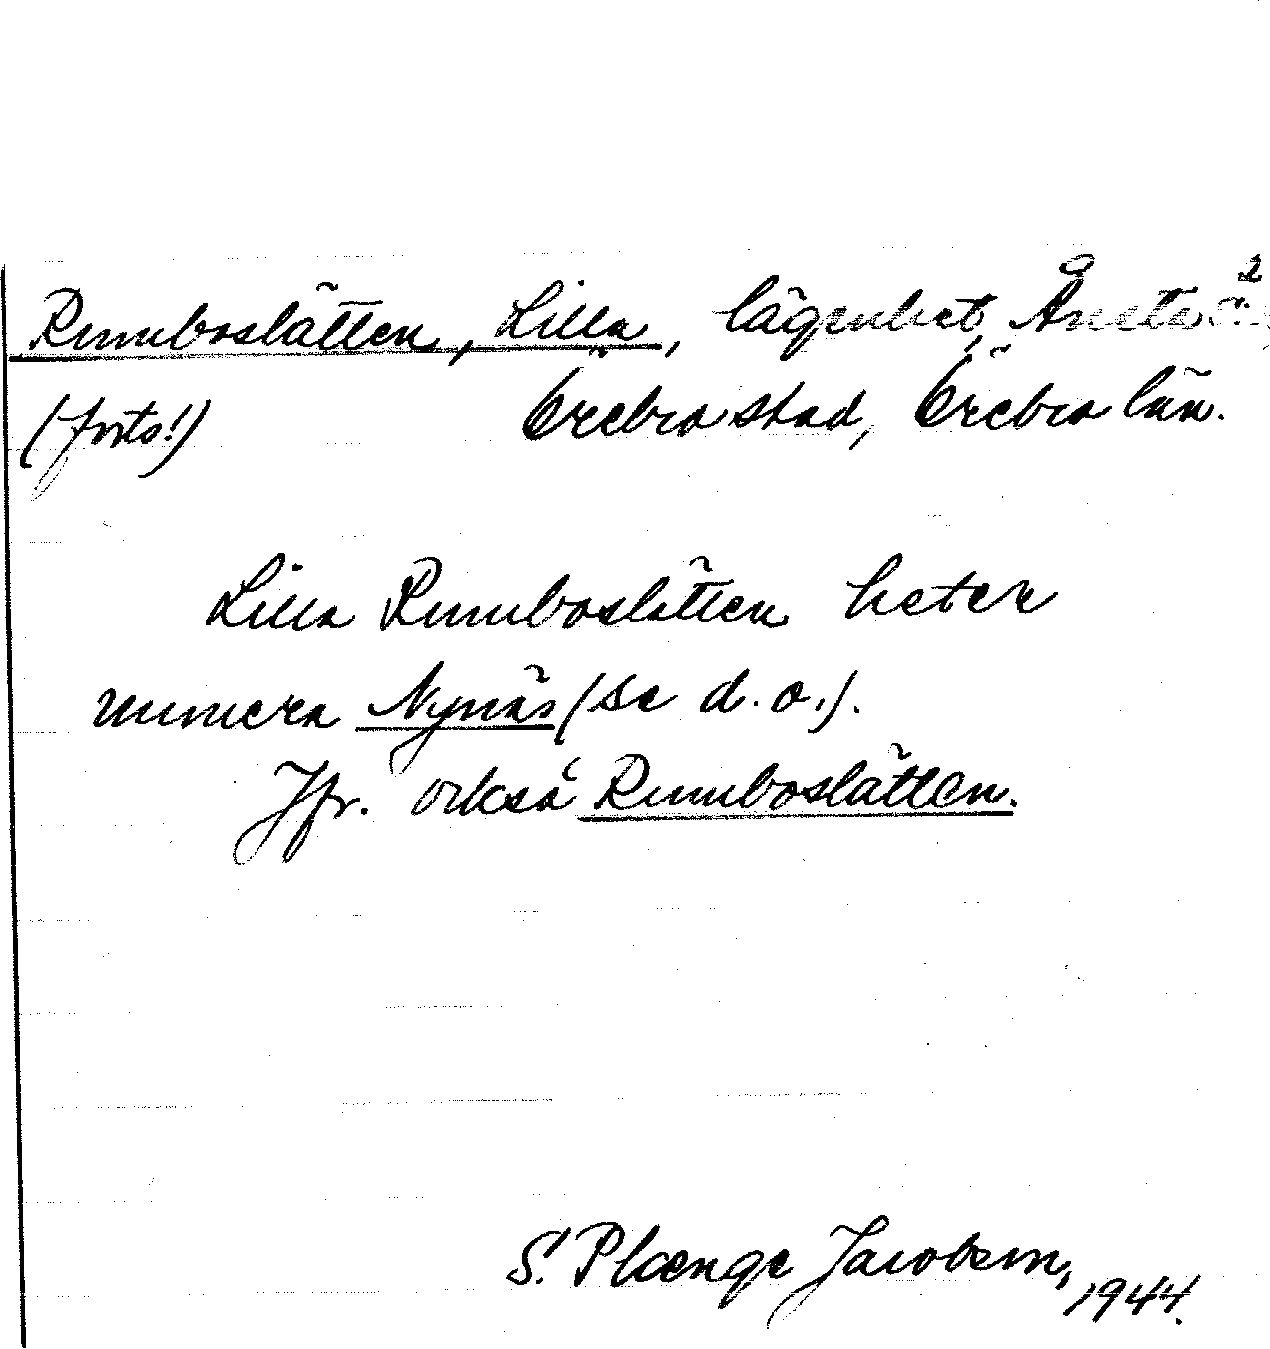 2
Rumboslätten, Lilla, lägenhet, Åneta
(forts!) Örebro stad, Örebro län.
Lilla Rumboslätten heter
numera Nynäs (se d.o.).
Jfr. också Rumboslätten.
S. Plænge Jacobson,
1944.